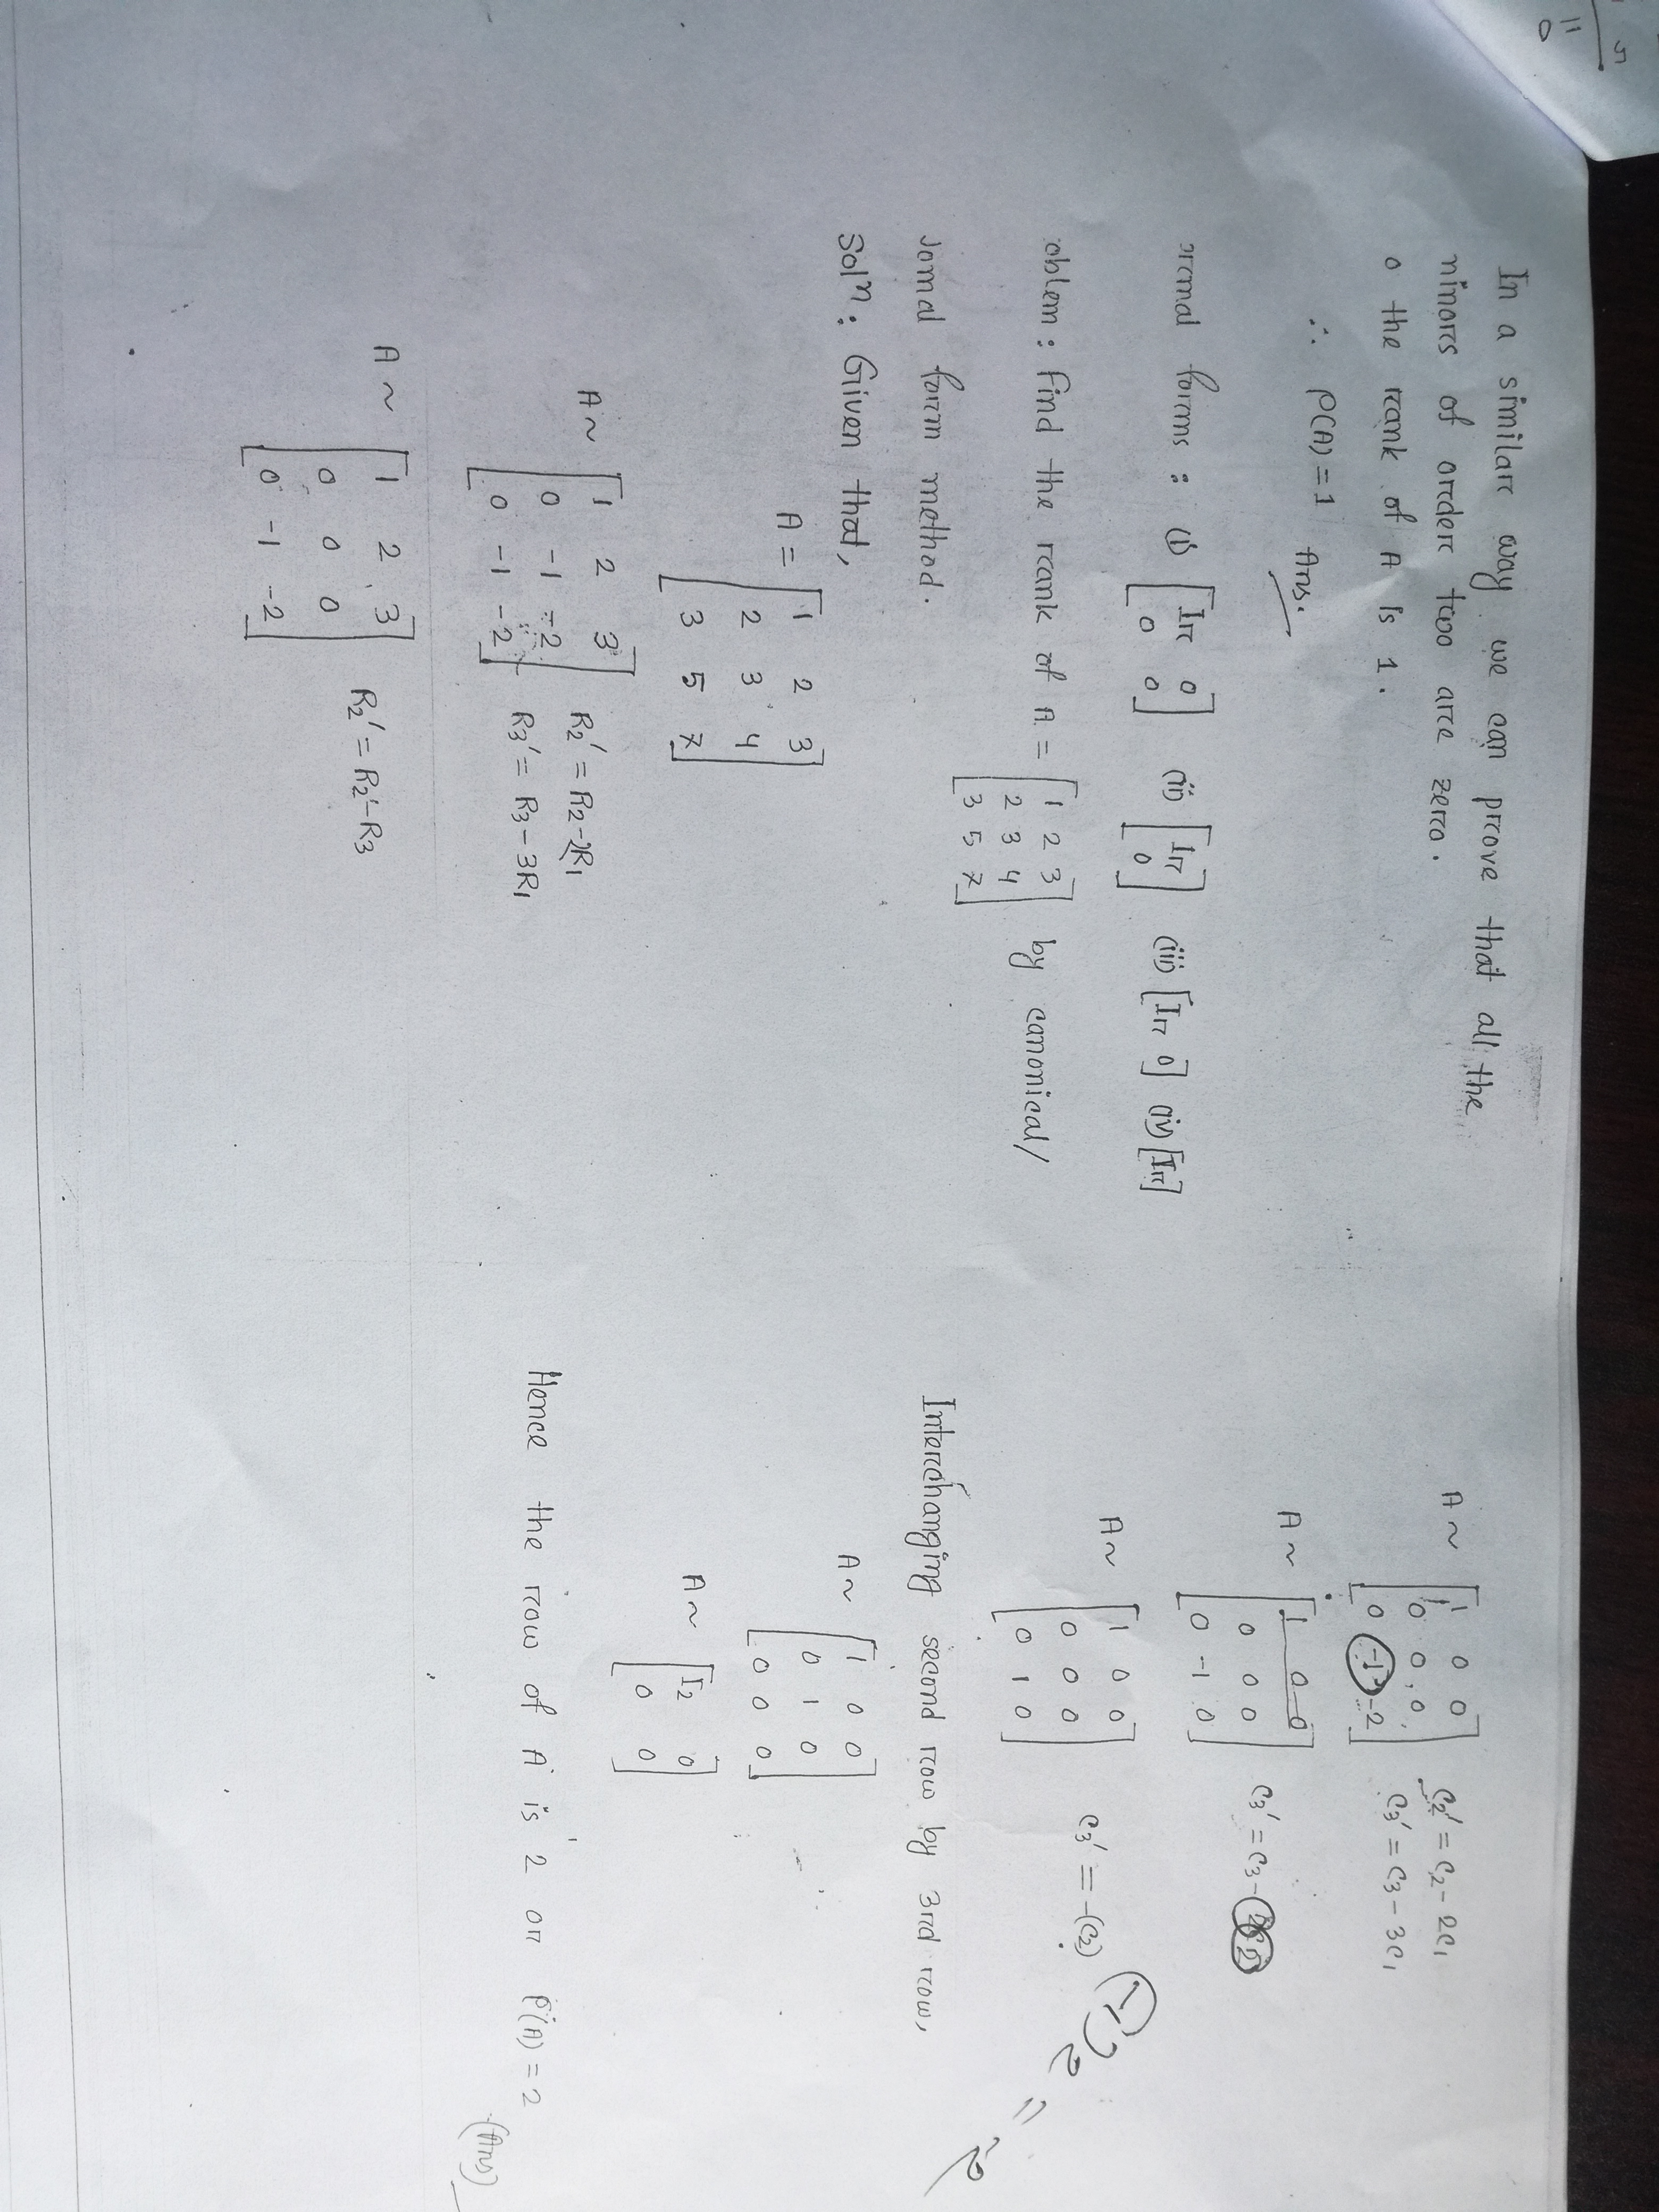 5 | = 0
In a similar way we can prove that all the
minors of order two are zero.
o the rank of A is 1.
∴ ρ(A) = 1 Ans.
ormal forms : (i) [Ir 0
0 0] (ii) [Ir
0] (iii) [Ir 0] (iv) [Ir]
oblem : Find the rank of A = [1 2 3
2 3 4
3 5 7] by canonical/
normal form method.
Solⁿ : Given that,
A = [1 2 3
2 3 4
3 5 7]
A ~ [1 2 3
0 -1 -2
0 -1 -2] R2' = R2 - 2R1
R3' = R3 - 3R1
A ~ [1 2 3
0 0 0
0 -1 -2] R2' = R2' - R3
A ~ [1 0 0
0 0 0
0 -1 -2] C2' = C2 - 2C1
C3' = C3 - 3C1
A ~ [1 0 0
0 0 0
0 -1 0] C3' = C3 - 2C2
A ~ [1 0 0
0 0 0
0 1 0] C3' = -(C2)
(-1) 2 = -2
Interchanging second row by 3rd row,
A ~ [1 0 0
0 1 0
0 0 0]
A ~ [I2 0
0 0]
Hence the row of A is 2 or ρ(A) = 2
(Ans)